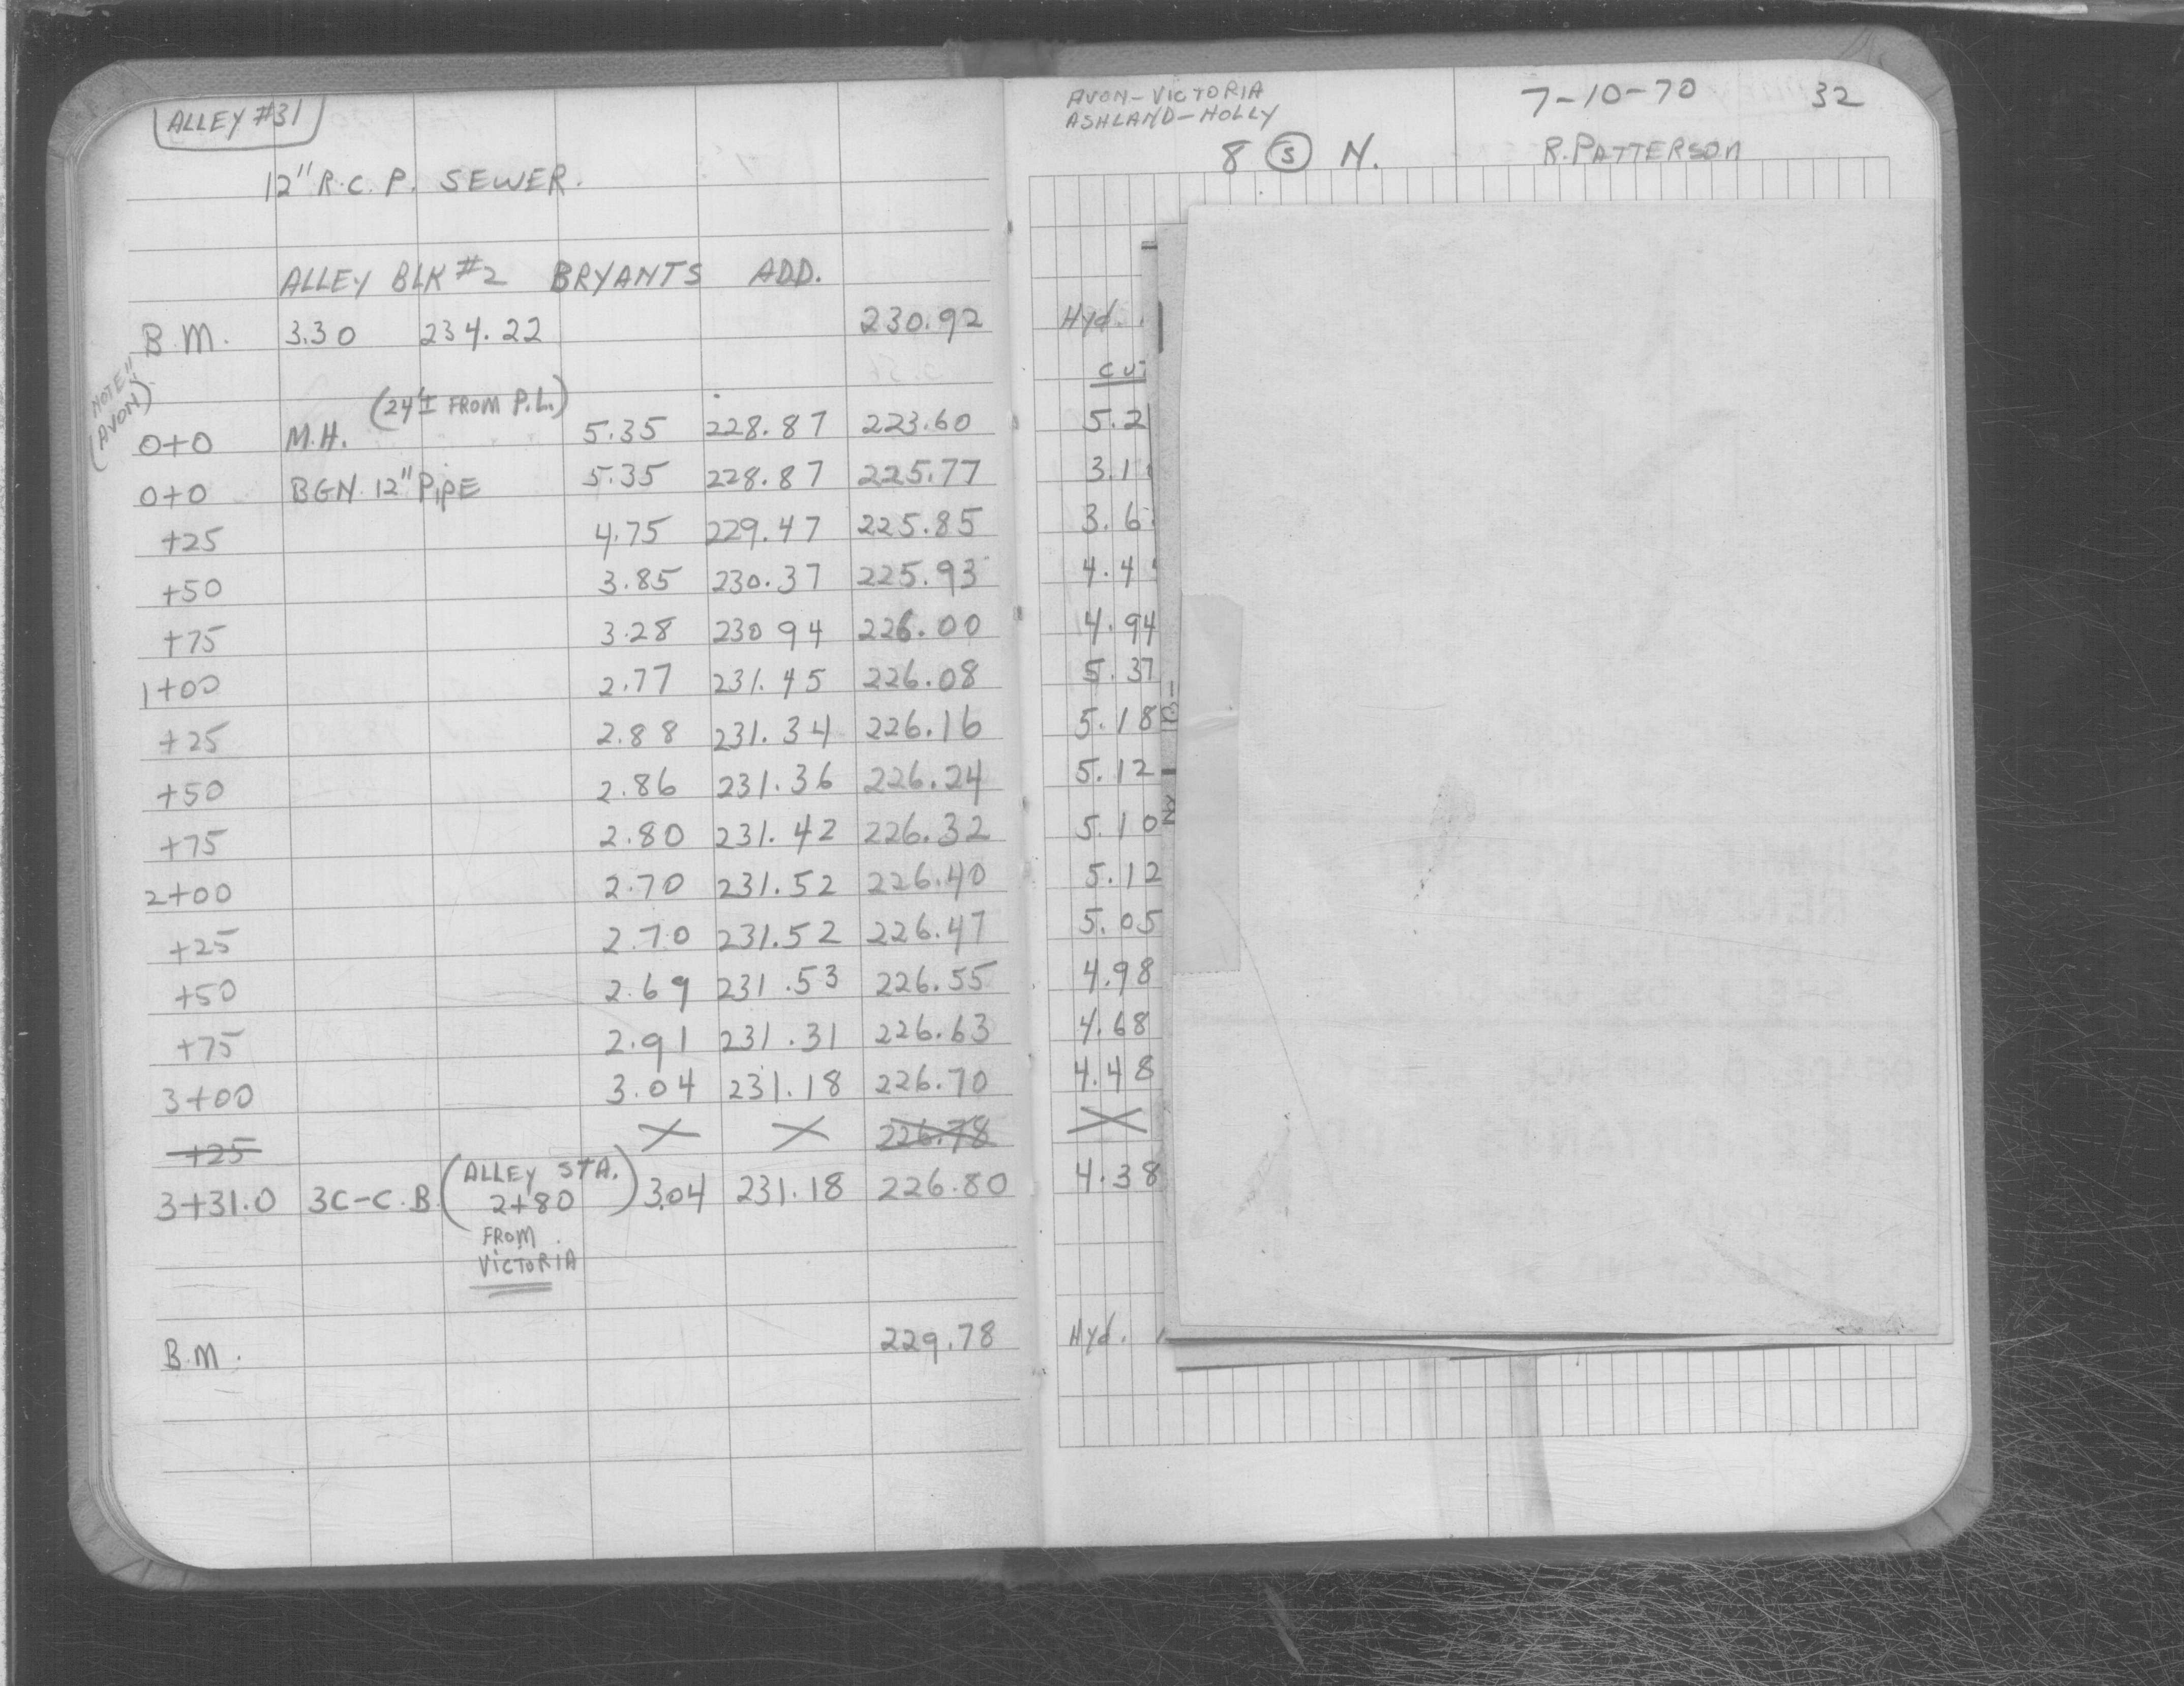 ALLEY #31
12" R.C.P. SEWER.
ALLEY BLK #2 BRYANTS ADD.
B.M. 3.30 234.22 230.92
NOTE"
(AVON)
(24'± FROM P.L.)
0+0 M.H. 5.35 228.87 223.60
0+0 BGN. 12" PIPE 5.35 228.87 225.77
+25 4.75 229.47 225.85
+50 3.85 230.37 225.93
+75 3.28 230 94 226.00
1+00 2.77 231.45 226.08
+25 2.88 231.34 226.16
+50 2.86 231.36 226.24
+75 2.80 231.42 226.32
2+00 2.70 231.52 226.40
+25 2.70 231.52 226.47
+50 2.69 231.53 226.55
+75 2.91 231.31 226.63
3+00 3.04 231.18 226.70
+25 X X 226.78
3+31.0 3C-C.B. (ALLEY STA. 2+80) 3.04 231.18 226.80
FROM
VICTORIA
B.M. 229.78
AVON-VICTORIA
ASHLAND-HOLLY
7-10-70 32
8 (S) N. R. PATTERSON
Hyd.
5.2
3.1
3.6
4.4
4.94
5.37
5.18
5.12
5.10
5.12
5.05
4.98
4.68
4.48
X
4.38
Hyd.